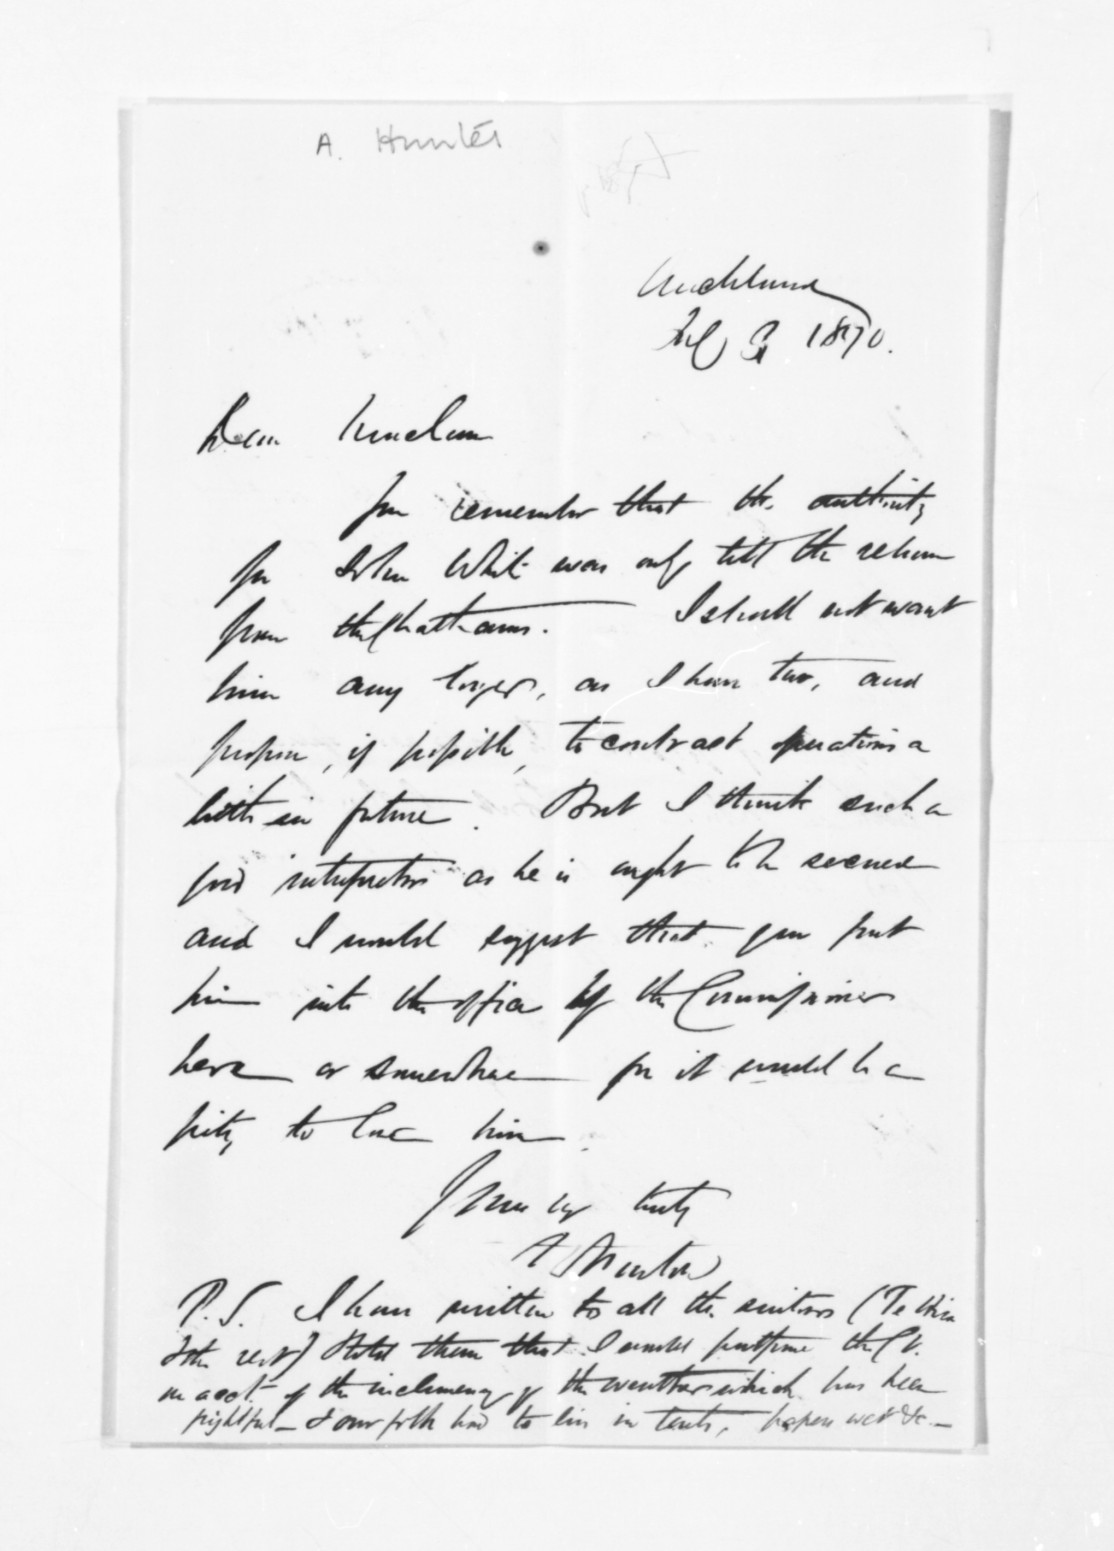 A. Hunter
Auckland
1870.
Dear Maclean
You remember that the authority
for John White was only till the return
from the Chathams. I shall not want
him any longer, as I have two, and
propose, if possible, to contract operations a
little in future. But I think such a
good interpreter as he is ought to be secured
and I would suggest that you put
him into the office of the Commissioner
here or somewhere for it would be a
pity to lose him
Yours very truly
P.S. I have written to all the suitors (Te Hira
& the rest) & told them that I would postpone the Ct.
on acct. of the inclemency of the weather which has been
frightful - & our folk had to live in tents, papers wet &c -